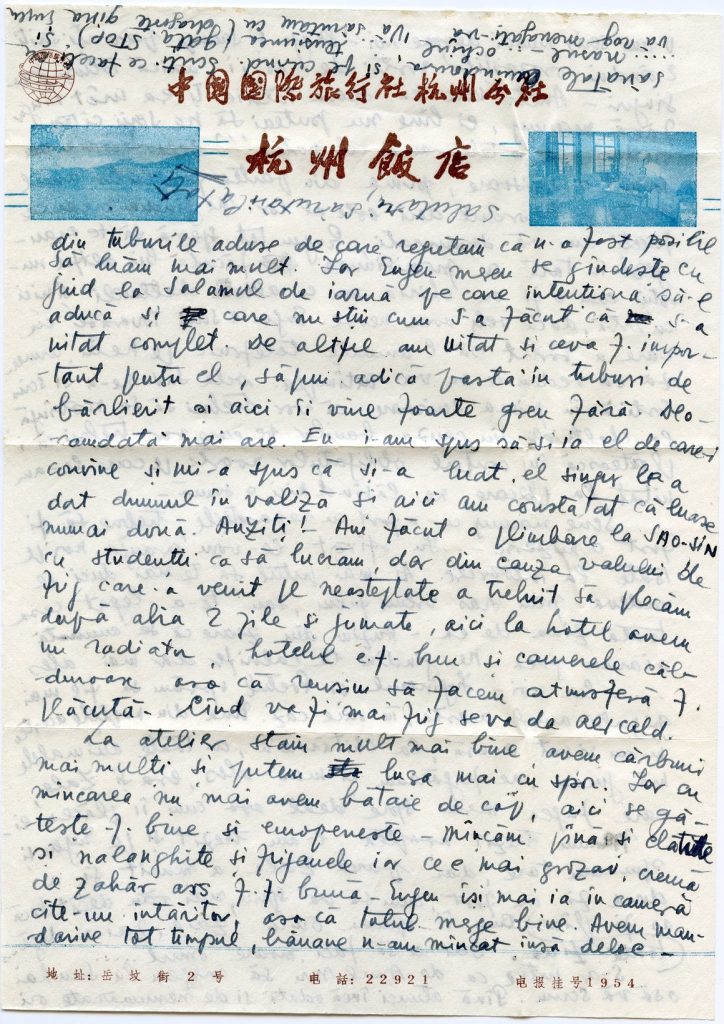 中国国际旅行社杭州分社
杭州飯店
din tuburile aduse de care regretam că n-a fost posibil
să luăm mai mult. Iar Eugen mereu se gîndește cu
jind la salamul de iarnă pe care intenționa să-l
aducă și care nu știu cum s-a făcut că s-a
uitat complet. De altfel am uitat și ceva f. impor-
tant pentru el, săpun adică pastă în tuburi de
bărbierit și aici îi vine foarte greu fără. Deo-
camdată mai are. Eu i-am spus să-și ia el de care-i
convine și mi-a spus că și-a luat, el singur le-a
dat drumul în valiză și aici am constatat că luase
numai două. Auziți! – Am făcut o plimbare la SAO-SIN
cu studenții ca să lucrăm, dar din cauza valului de
frig care a venit pe neașteptate a trebuit să plecăm
după abia 2 zile și jumate, aici la hotel avem
un radiator, hotelul e f. bun și camerele căl-
duroase așa că reușim să facem atmosferă f.
plăcută – Cînd va fi mai frig se va da aer cald.
La atelier stăm mult mai bine, avem cărbuni
mai mulți și putem lucra mai cu spor. Iar cu
mîncarea nu mai avem bătaie de cap, aici se gă-
tește f. bine și europenește – mîncăm pînă și clătite
și nalanghite și frigănele iar ce e mai grozav, cremă
de zahăr ars f. f. bună – Eugen își mai ia în cameră
cîte-un întăritor, așa că totul merge bine. Avem man-
darine tot timpul, banane n-am mîncat însă deloc –
地址:岳坟街2号 电話:22921 电报挂号1954
vă rog menajați-vă
nasul – ochiul
sănătate
tensiunea (gata, STOP)
Vă sărutăm cu dragoste
Salutări,